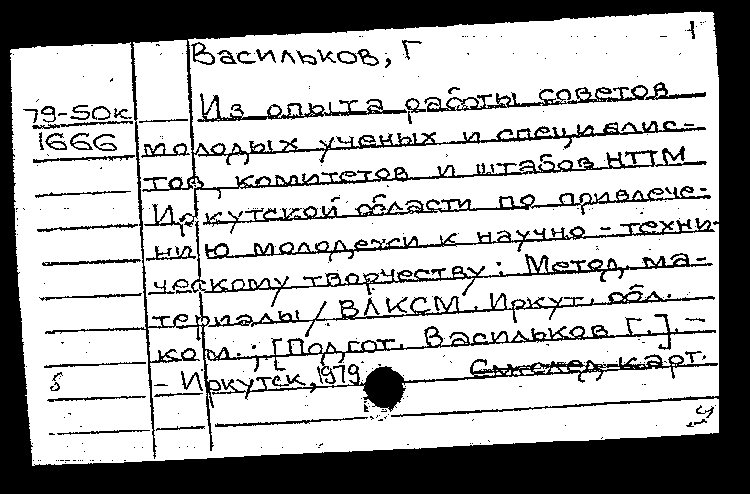 1
Васильков, Г
79-50к Из опыта работы советов
1666 молодых ученых и специалис-
тов, комитетов и штабов НТТМ
Иркутской области по привлече-
нию молодежи к научно-техни-
ческому творчеству: Метод. ма-
териалы / ВЛКСМ. Иркут. обл.
ком.; [Подгот. Васильков Г.]. -
- Иркутск, 1979 См. след. карт.